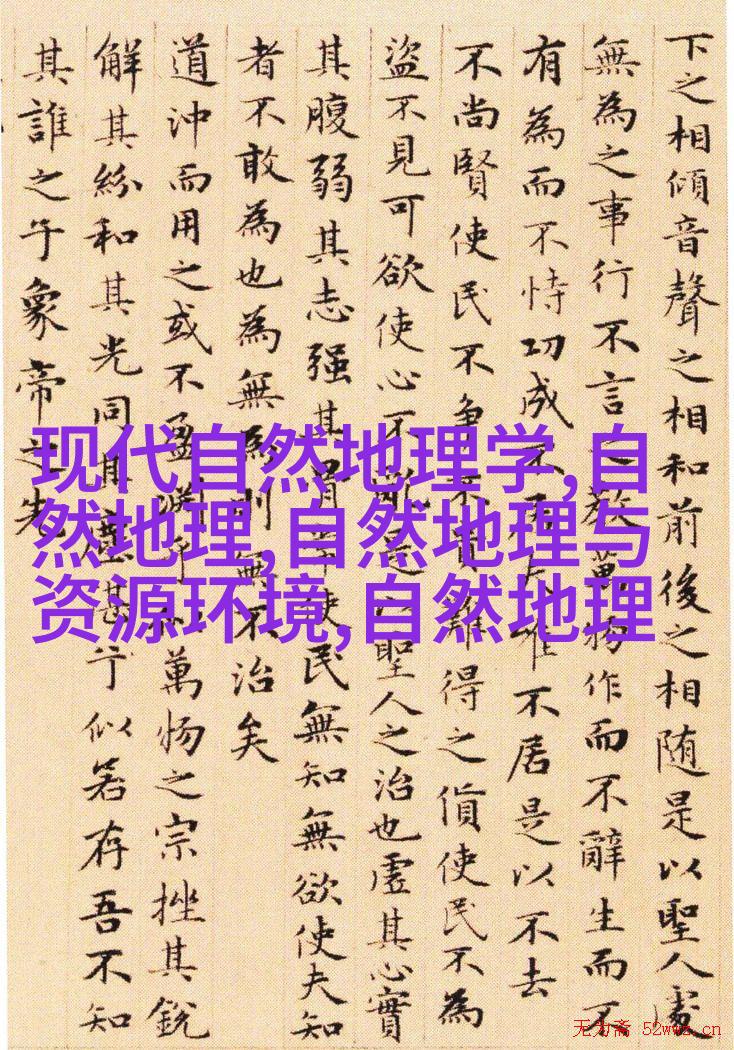 下之相傾音聲之相和前後之相随是以聖人處
無為之事行不言之教萬物作而不辭生而不
有為而不恃功成不居夫唯不居是以不去
不尚賢使民不争不貴難得之貨使民不為
盜不見可欲使心不亂是以聖人之治也虛其心實
其腹弱其志强其骨常使民無知無欲使夫知
者不敢為也為無為則無不治矣
道沖而用之或不盈淵乎似萬物之宗挫其銳
解其紛和其光同其塵湛兮似若存吾不知
其誰之子象帝之先
现代自然地理学,自
然地理,自然地理与
资源环境,自然地理
无为斋 52wwz.cn